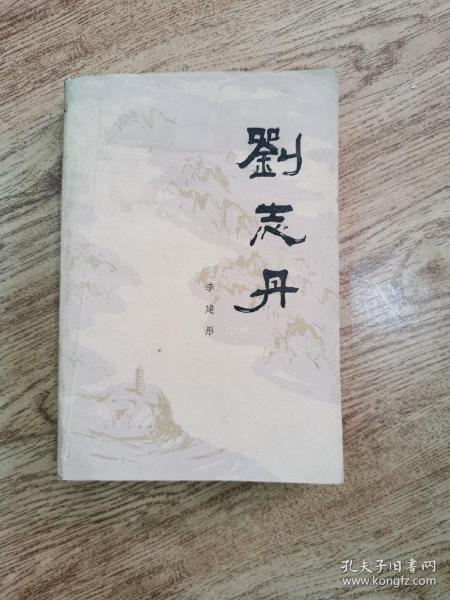 劉志丹
李建彤
孔夫子旧书网
www.kongfz.com